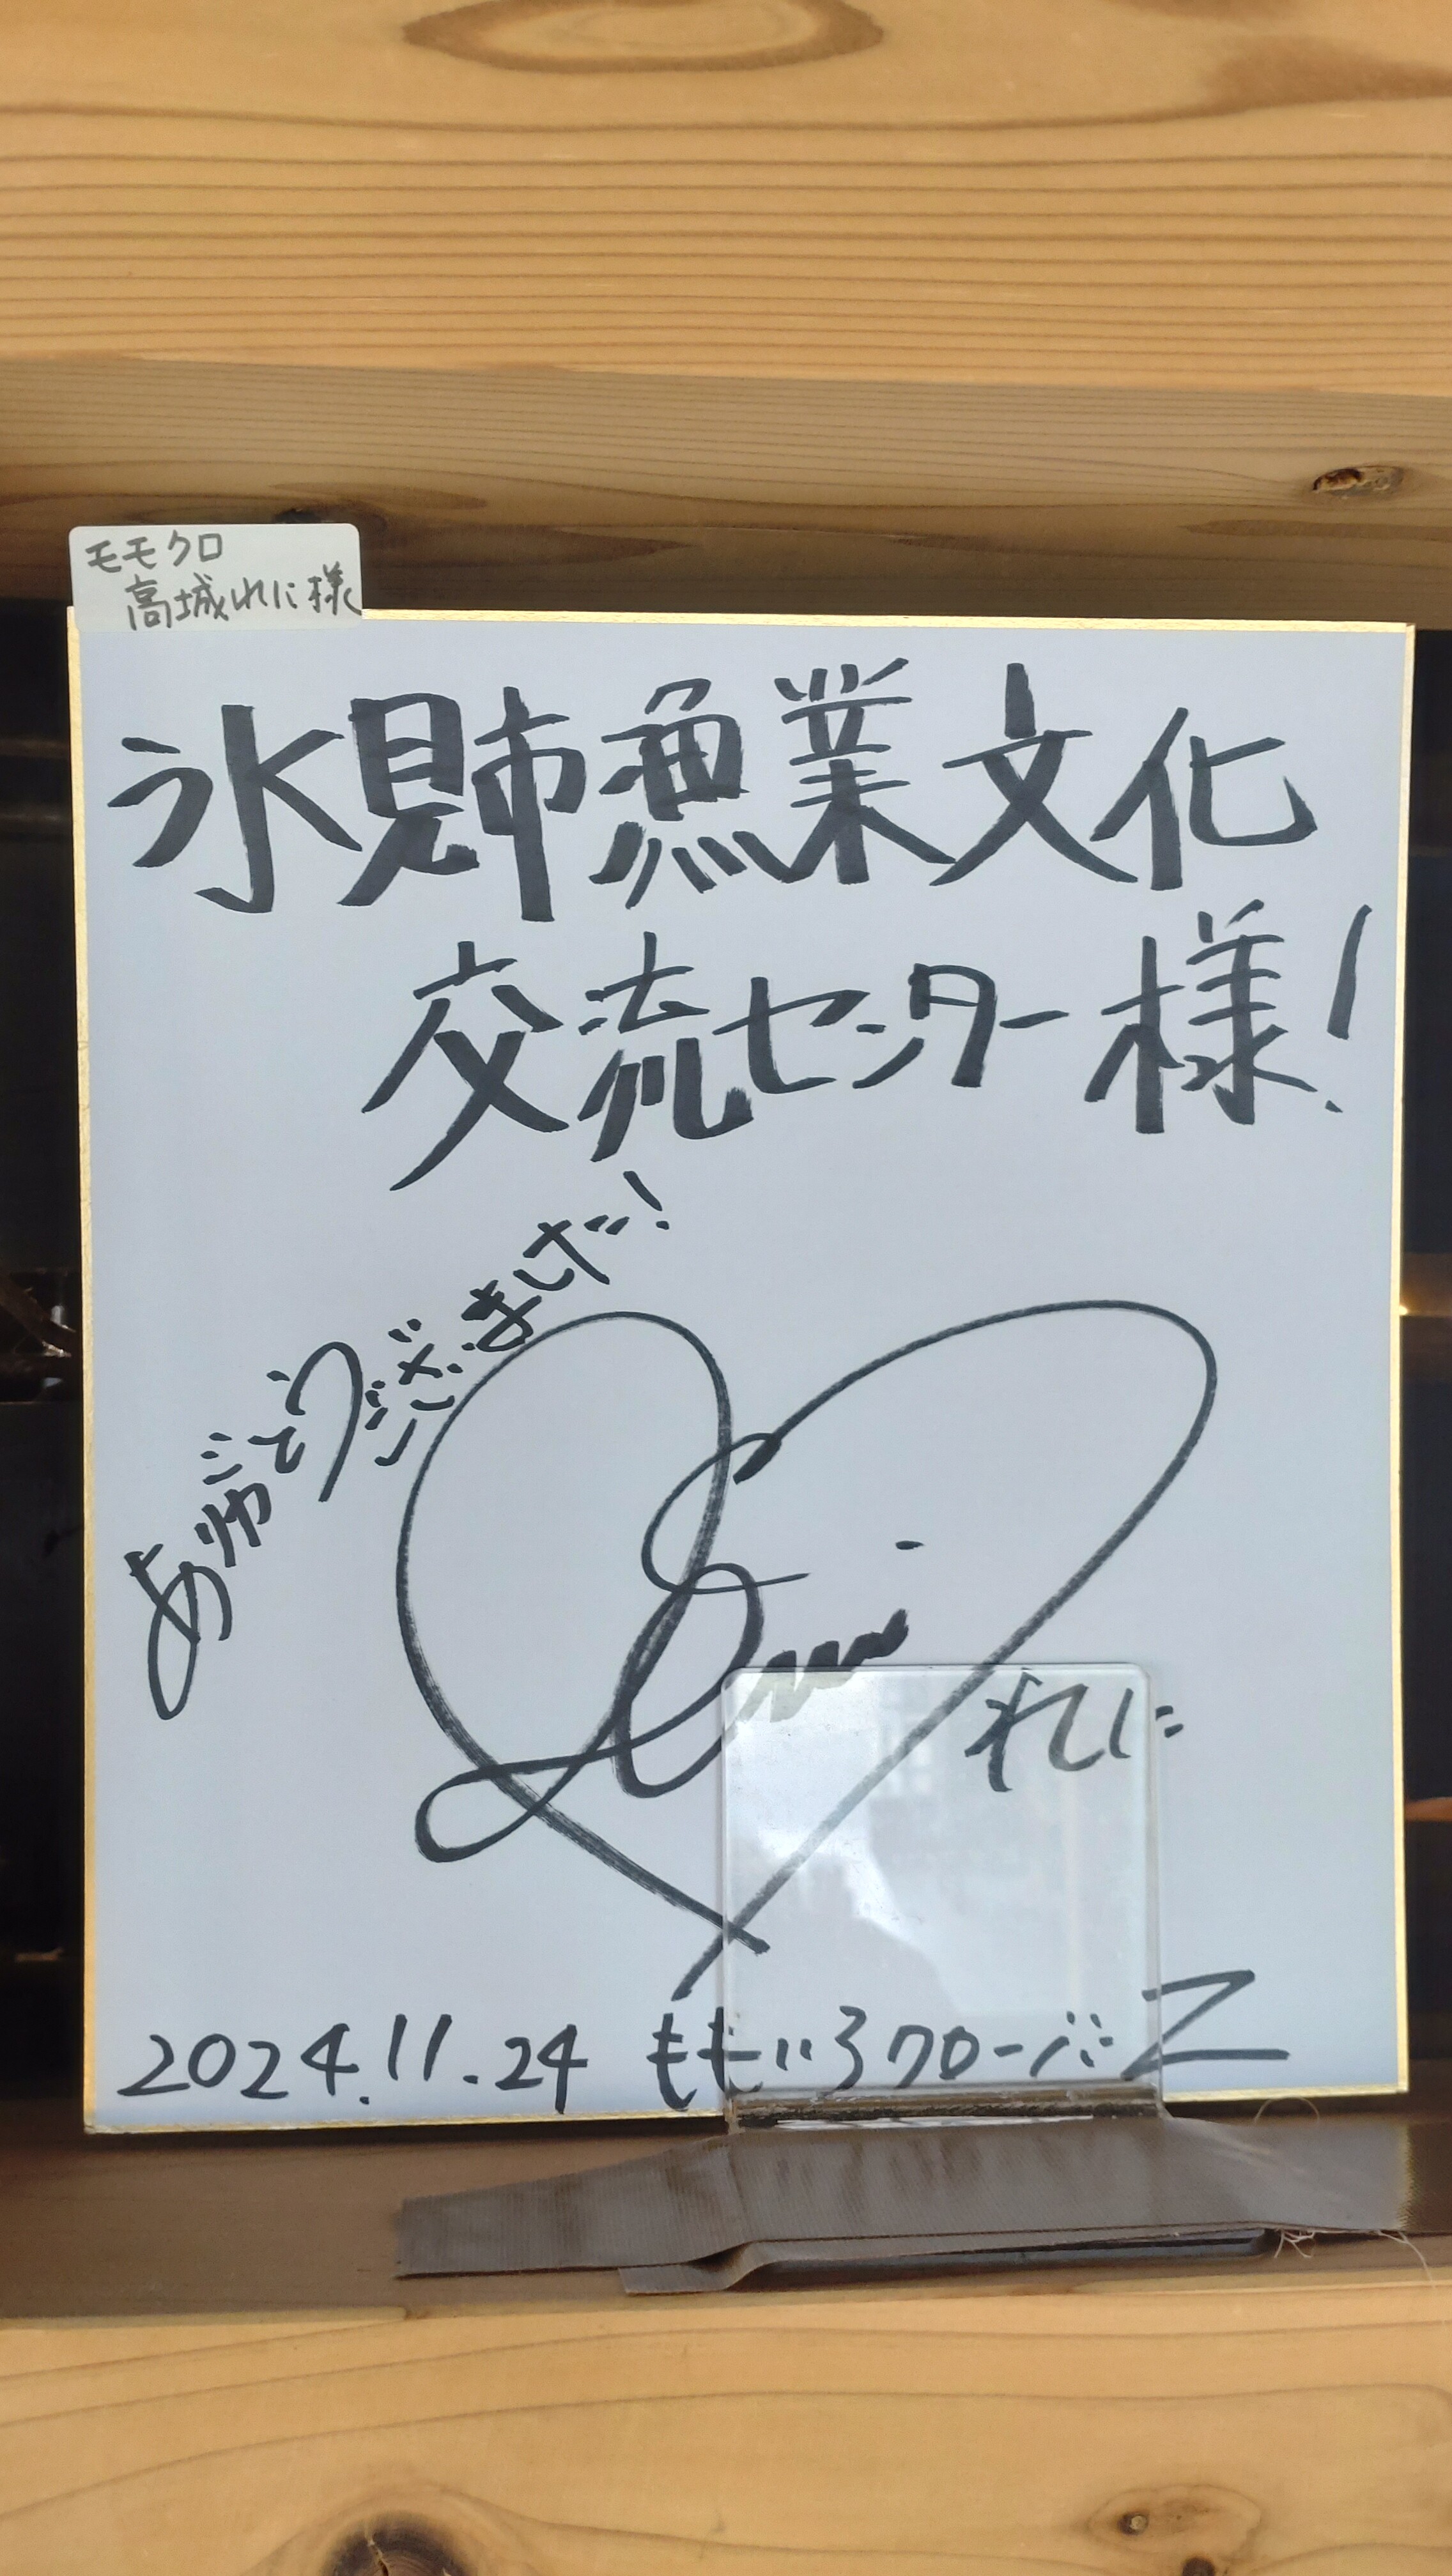 モモクロ
高城れに様
氷見市漁業文化
交流センター様!
ありがとうございまず!
Reni
れに
2024.11.24 ももいろクローバーZ